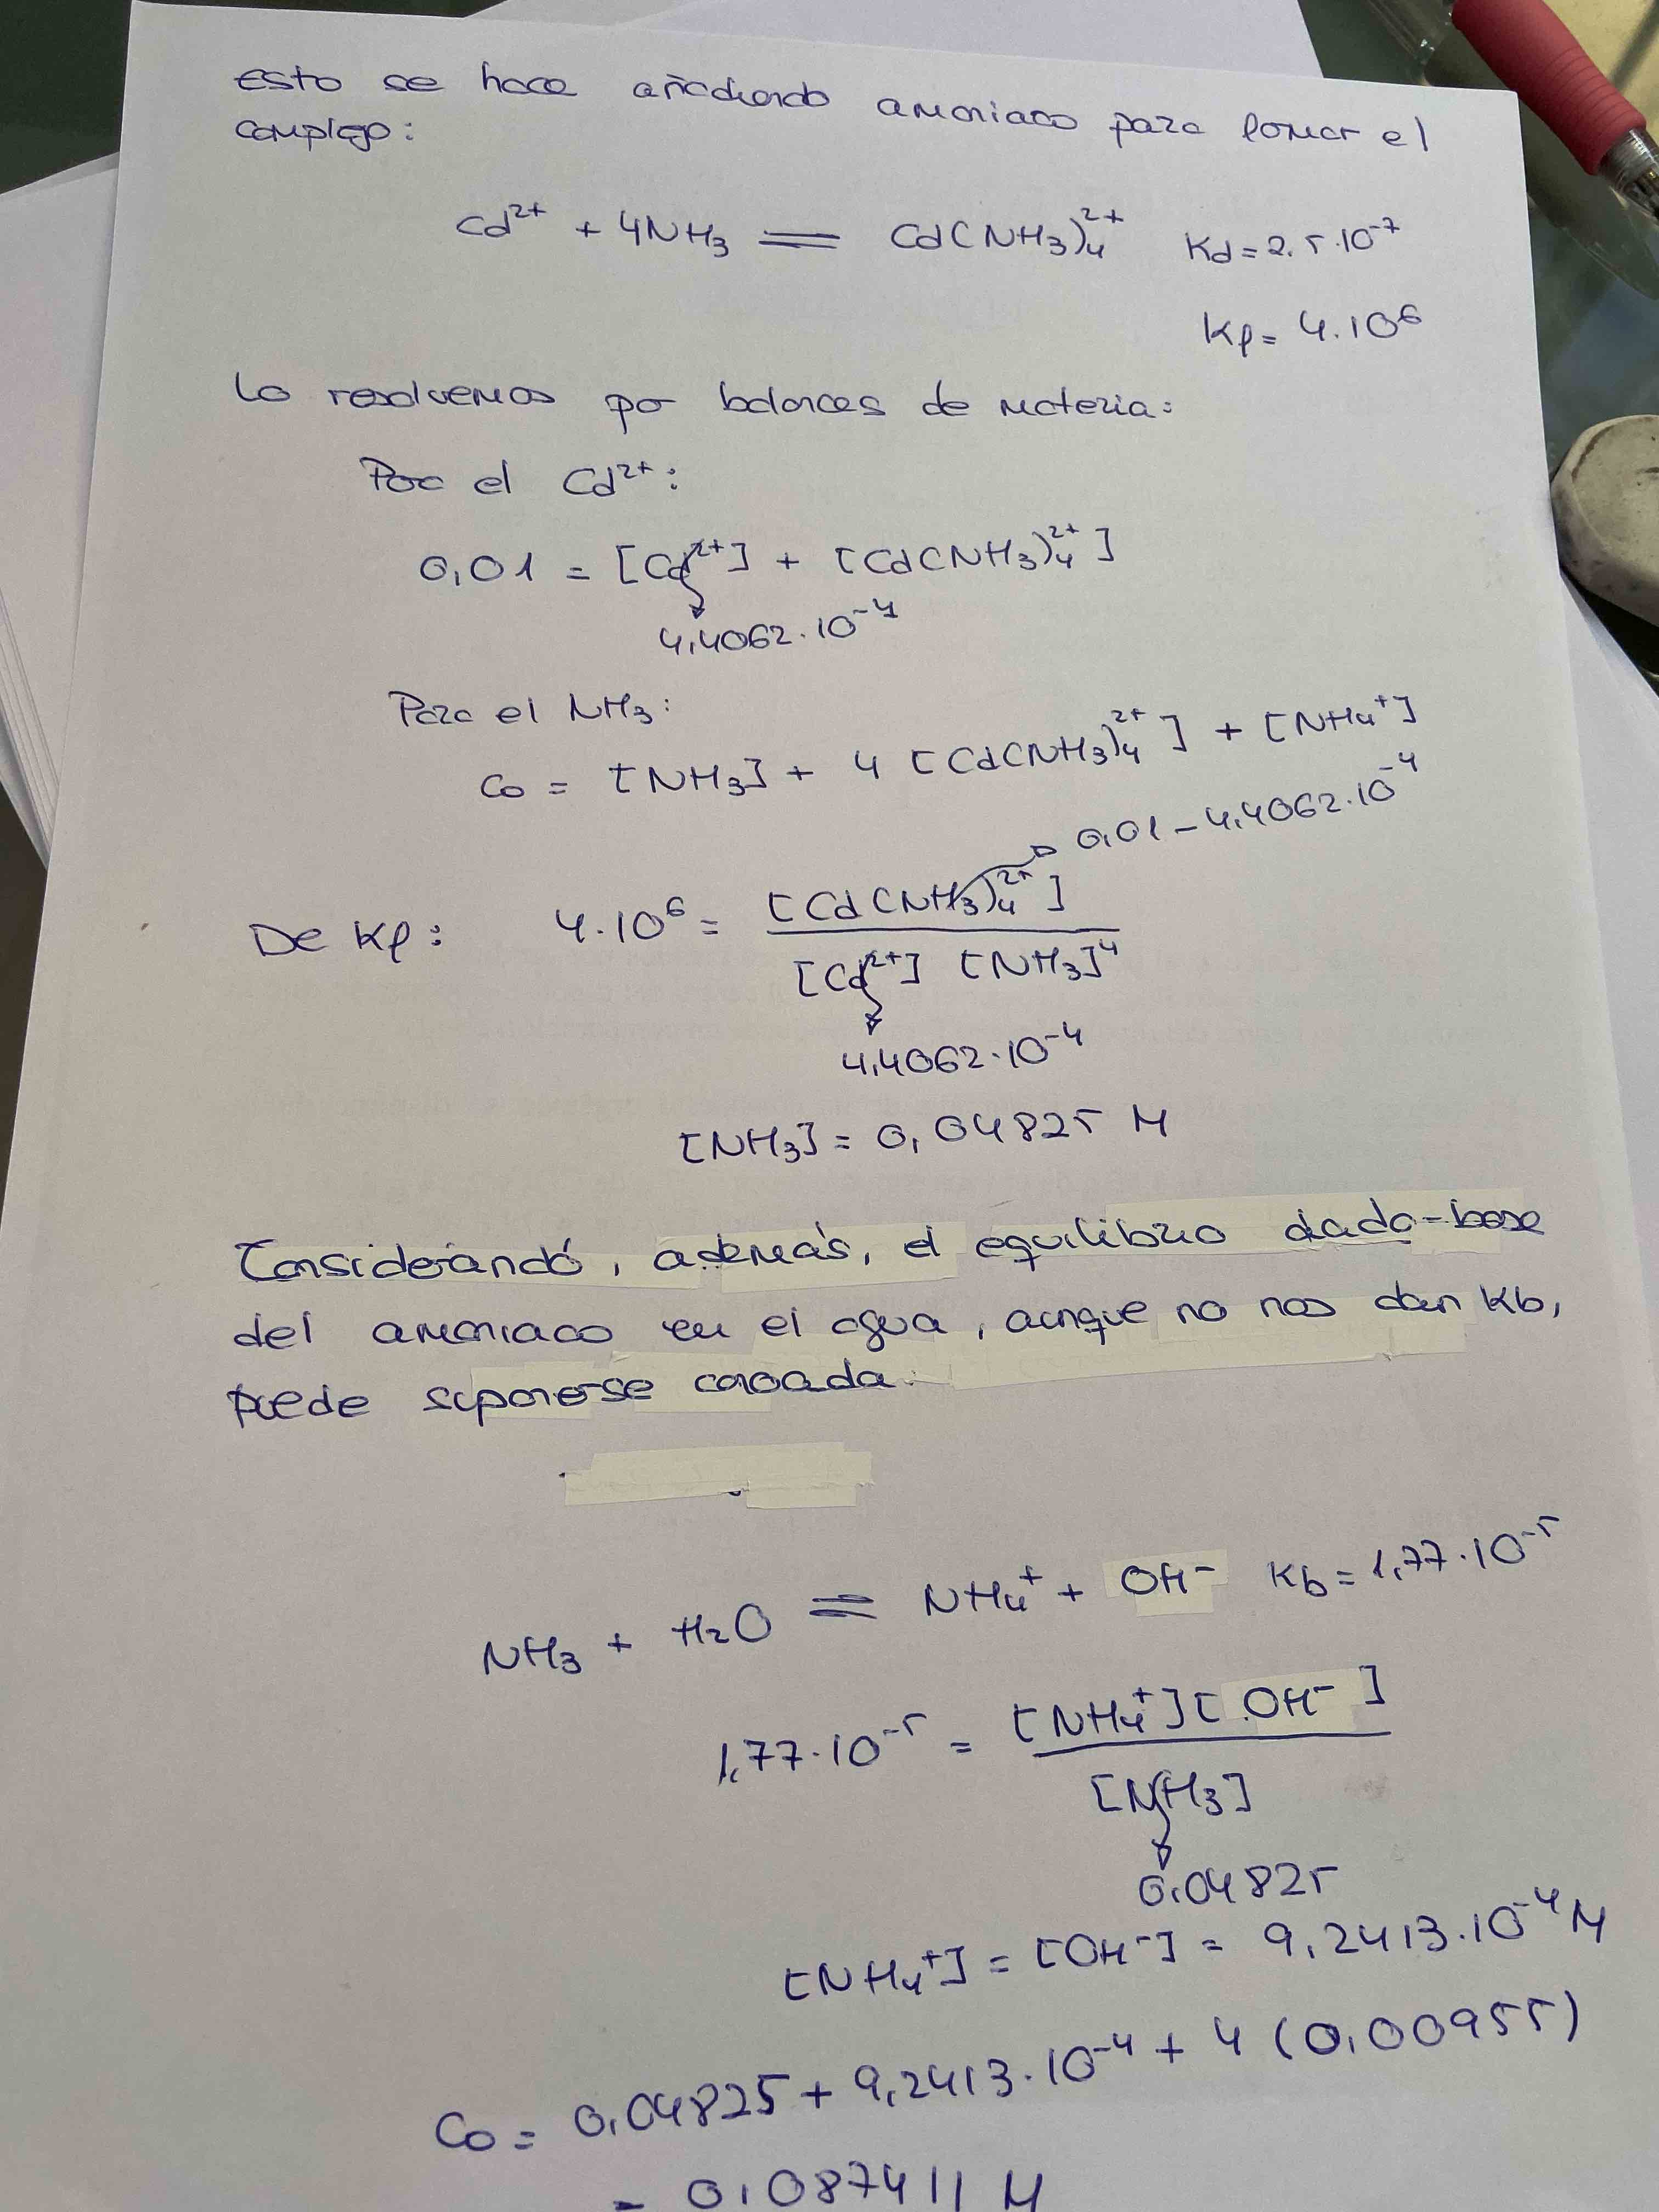 Esto se hace añadiendo amoniaco para formar el
complejo:
Cd²⁺ + 4NH₃ ═ Cd(NH₃)₄²⁺ Kd = 2,5·10⁻⁷
Kf = 4·10⁶
Lo resolvemos por balances de materia:
Para el Cd²⁺:
0,01 = [Cd²⁺] + [Cd(NH₃)₄²⁺]
4,4062·10⁻⁴
Para el NH₃:
Co = [NH₃] + 4 [Cd(NH₃)₄²⁺] + [NH₄⁺]
0,01 - 4,4062·10⁻⁴
De Kf: 4·10⁶ = [Cd(NH₃)₄²⁺]
[Cd²⁺] [NH₃]⁴
4,4062·10⁻⁴
[NH₃] = 0,04825 M
Considerando, además, el equilibrio ácido-base
del amoniaco en el agua, aunque no nos dan Kb,
puede suponerse conocida.
NH₃ + H₂O ═ NH₄⁺ + OH⁻ Kb = 1,77·10⁻⁵
1,77·10⁻⁵ = [NH₄⁺][OH⁻]
[NH₃]
0,04825
[NH₄⁺] = [OH⁻] = 9,2413·10⁻⁴ M
Co = 0,04825 + 9,2413·10⁻⁴ + 4 (0,00955)
= 0,087411 M